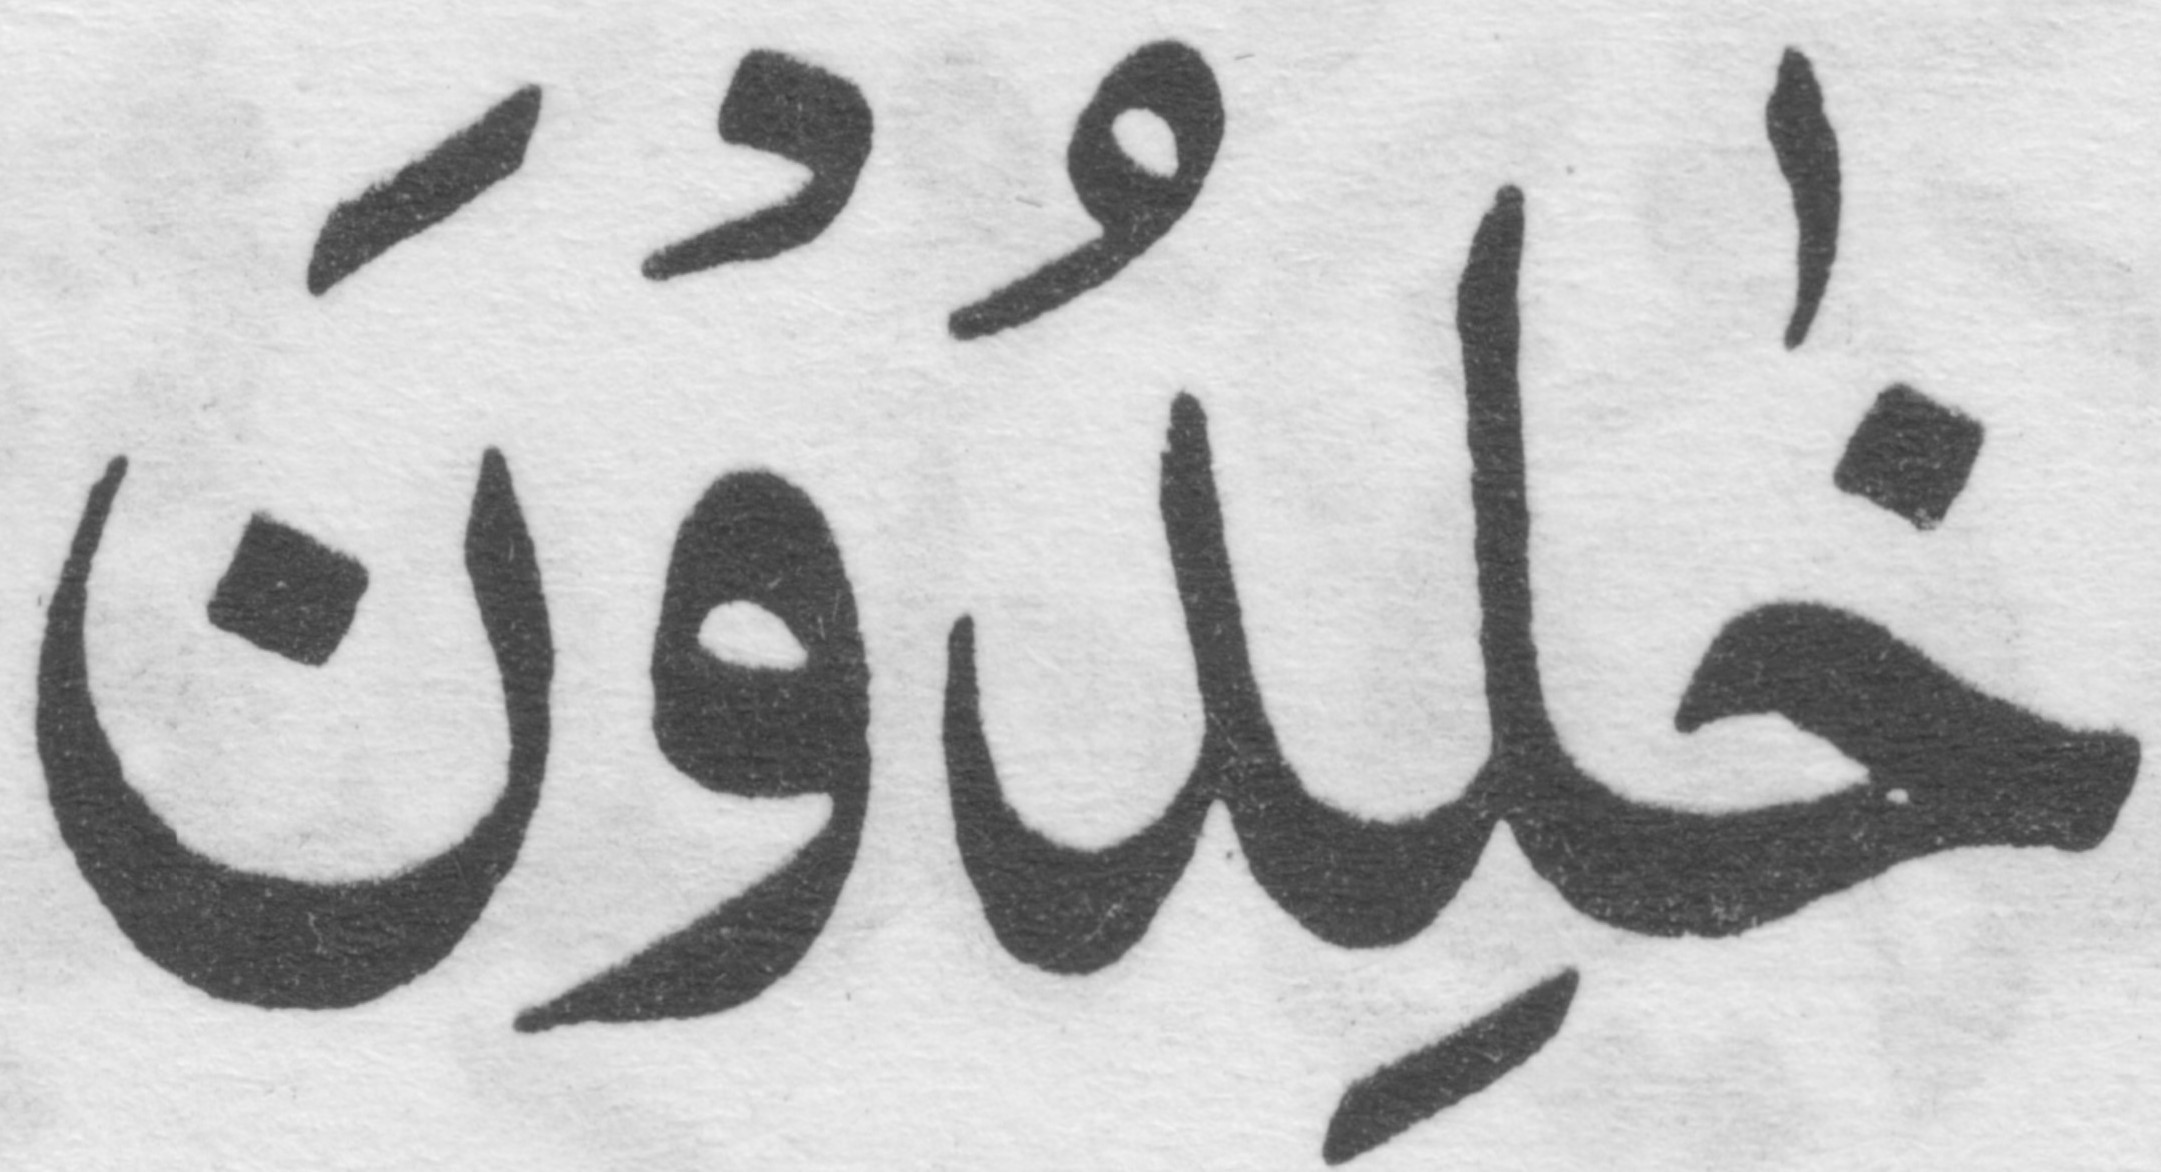 خٰلِدُوۡنَ